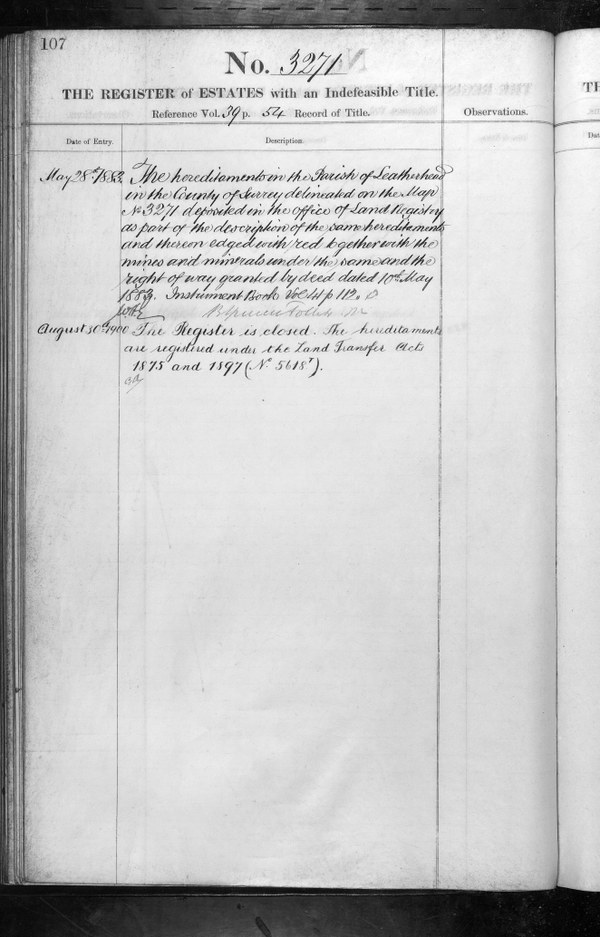 107
No. 3271
THE REGISTER of ESTATES with an Indefeasible Title.
Reference Vol. 39 p. 54 Record of Title.
Observations.
Date of Entry.
Description.
May 28th 1883. The hereditaments in the Parish of Leatherhead
in the County of Surrey delineated on the Map
No 3271 deposited in the office of Land Registry
as part of the description of the same hereditaments
and thereon edged with red together with the
mines and minerals under the same and the
right of way granted by deed dated 10th May
1883. Instrument Book Vol 41 p 112.
August 30th 1900 The Register is closed. The hereditaments
are registered under the Land Transfer Acts
1875 and 1897 (No. 5618).
TH
Dat